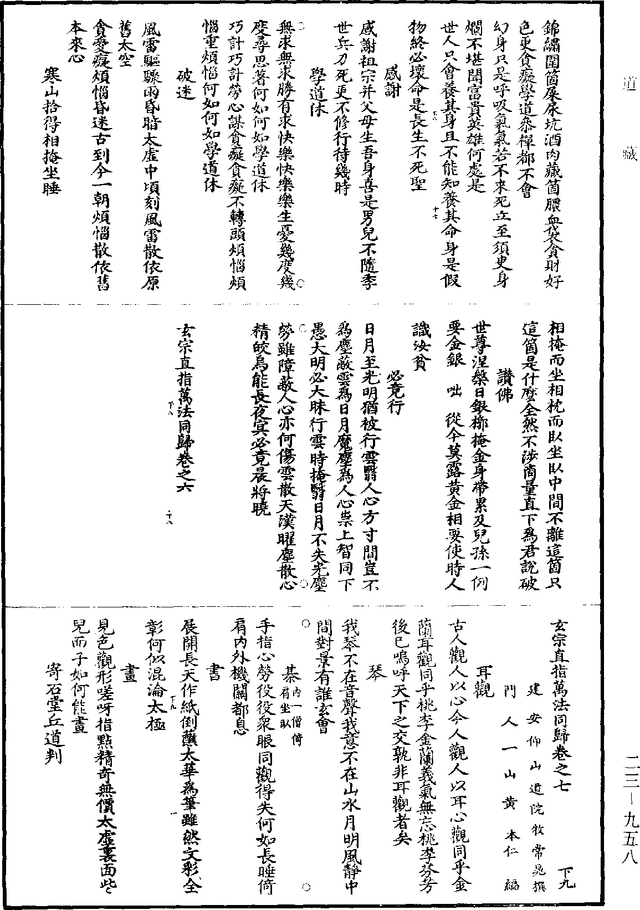 道藏
錦繡圍箇屎尿坑酒肉藏箇膿血袋貪財好
色更貪癡學道叅禪都不會
幻身只是呼吸氣氣若不來死立至須臾身
爛不堪聞富貴英雄何處是
世人只會養其身且不能知養其命身是假
物終必壞命是長生不死聖
感謝
感謝祖宗并父母生吾身喜是男兒不隨李
世兵刀死更不修行待幾時
學道休
無求無求勝有求快樂快樂樂生憂幾度幾
度尋思著何如何如學道休
巧計巧計勞心謀貪癡貪癡不轉頭煩惱煩
惱重煩惱何如何如學道休
破迷
風雷驅驟雨昏暗太虛中頃刻風雷散依原
舊太空
貪愛癡煩惱昏迷古到今一朝煩惱散依舊
本來心
寒山拾得相掩坐睡
相掩而坐相枕而臥坐臥中間不離這箇只
這箇是什麼全然不涉啇量直下爲君說破
讚佛
世尊涅槃日銀槨掩金身帶累及兒孫一例
要金銀 咄 從今莫露黃金相要使時人
識汝貧
必竟行
日月至光明猶被行雲翳人心方寸間豈不
爲塵蔽雲爲日月魔塵爲人心祟上智同下
愚大明必大昧行雲時掩翳日月不失光塵
勞雖障蔽人心亦何傷雲散天漢曜塵散心
精皎烏能長夜㝠必竟晨將曉
玄宗直指萬法同歸卷之六
玄宗直指萬法同歸卷之七 下九
建安仰山道院牧常晁撰
門人一山黃本仁編
耳觀
古人觀人以心今人觀人以耳心觀同乎金
蘭耳觀同乎桃李金蘭義氣無忘桃李芬芳
後已嗚呼天下之交孰非耳觀者矣
琴
我琴不在音聲我意不在山水月明風靜中
間對景有誰玄會
棊 內一僧倚肩坐臥
手指心勞役役衆眼同觀得失何如長睡倚
肩內外機關都息
書
展開長天作紙倒蘸太華爲筆雖然文彩全
彰何似混淪太極
畫
見色觀形嗟呀指點精奇無價太虛裏面些些
兒而子如何能畫
寄石堂丘道判
二三—九五八